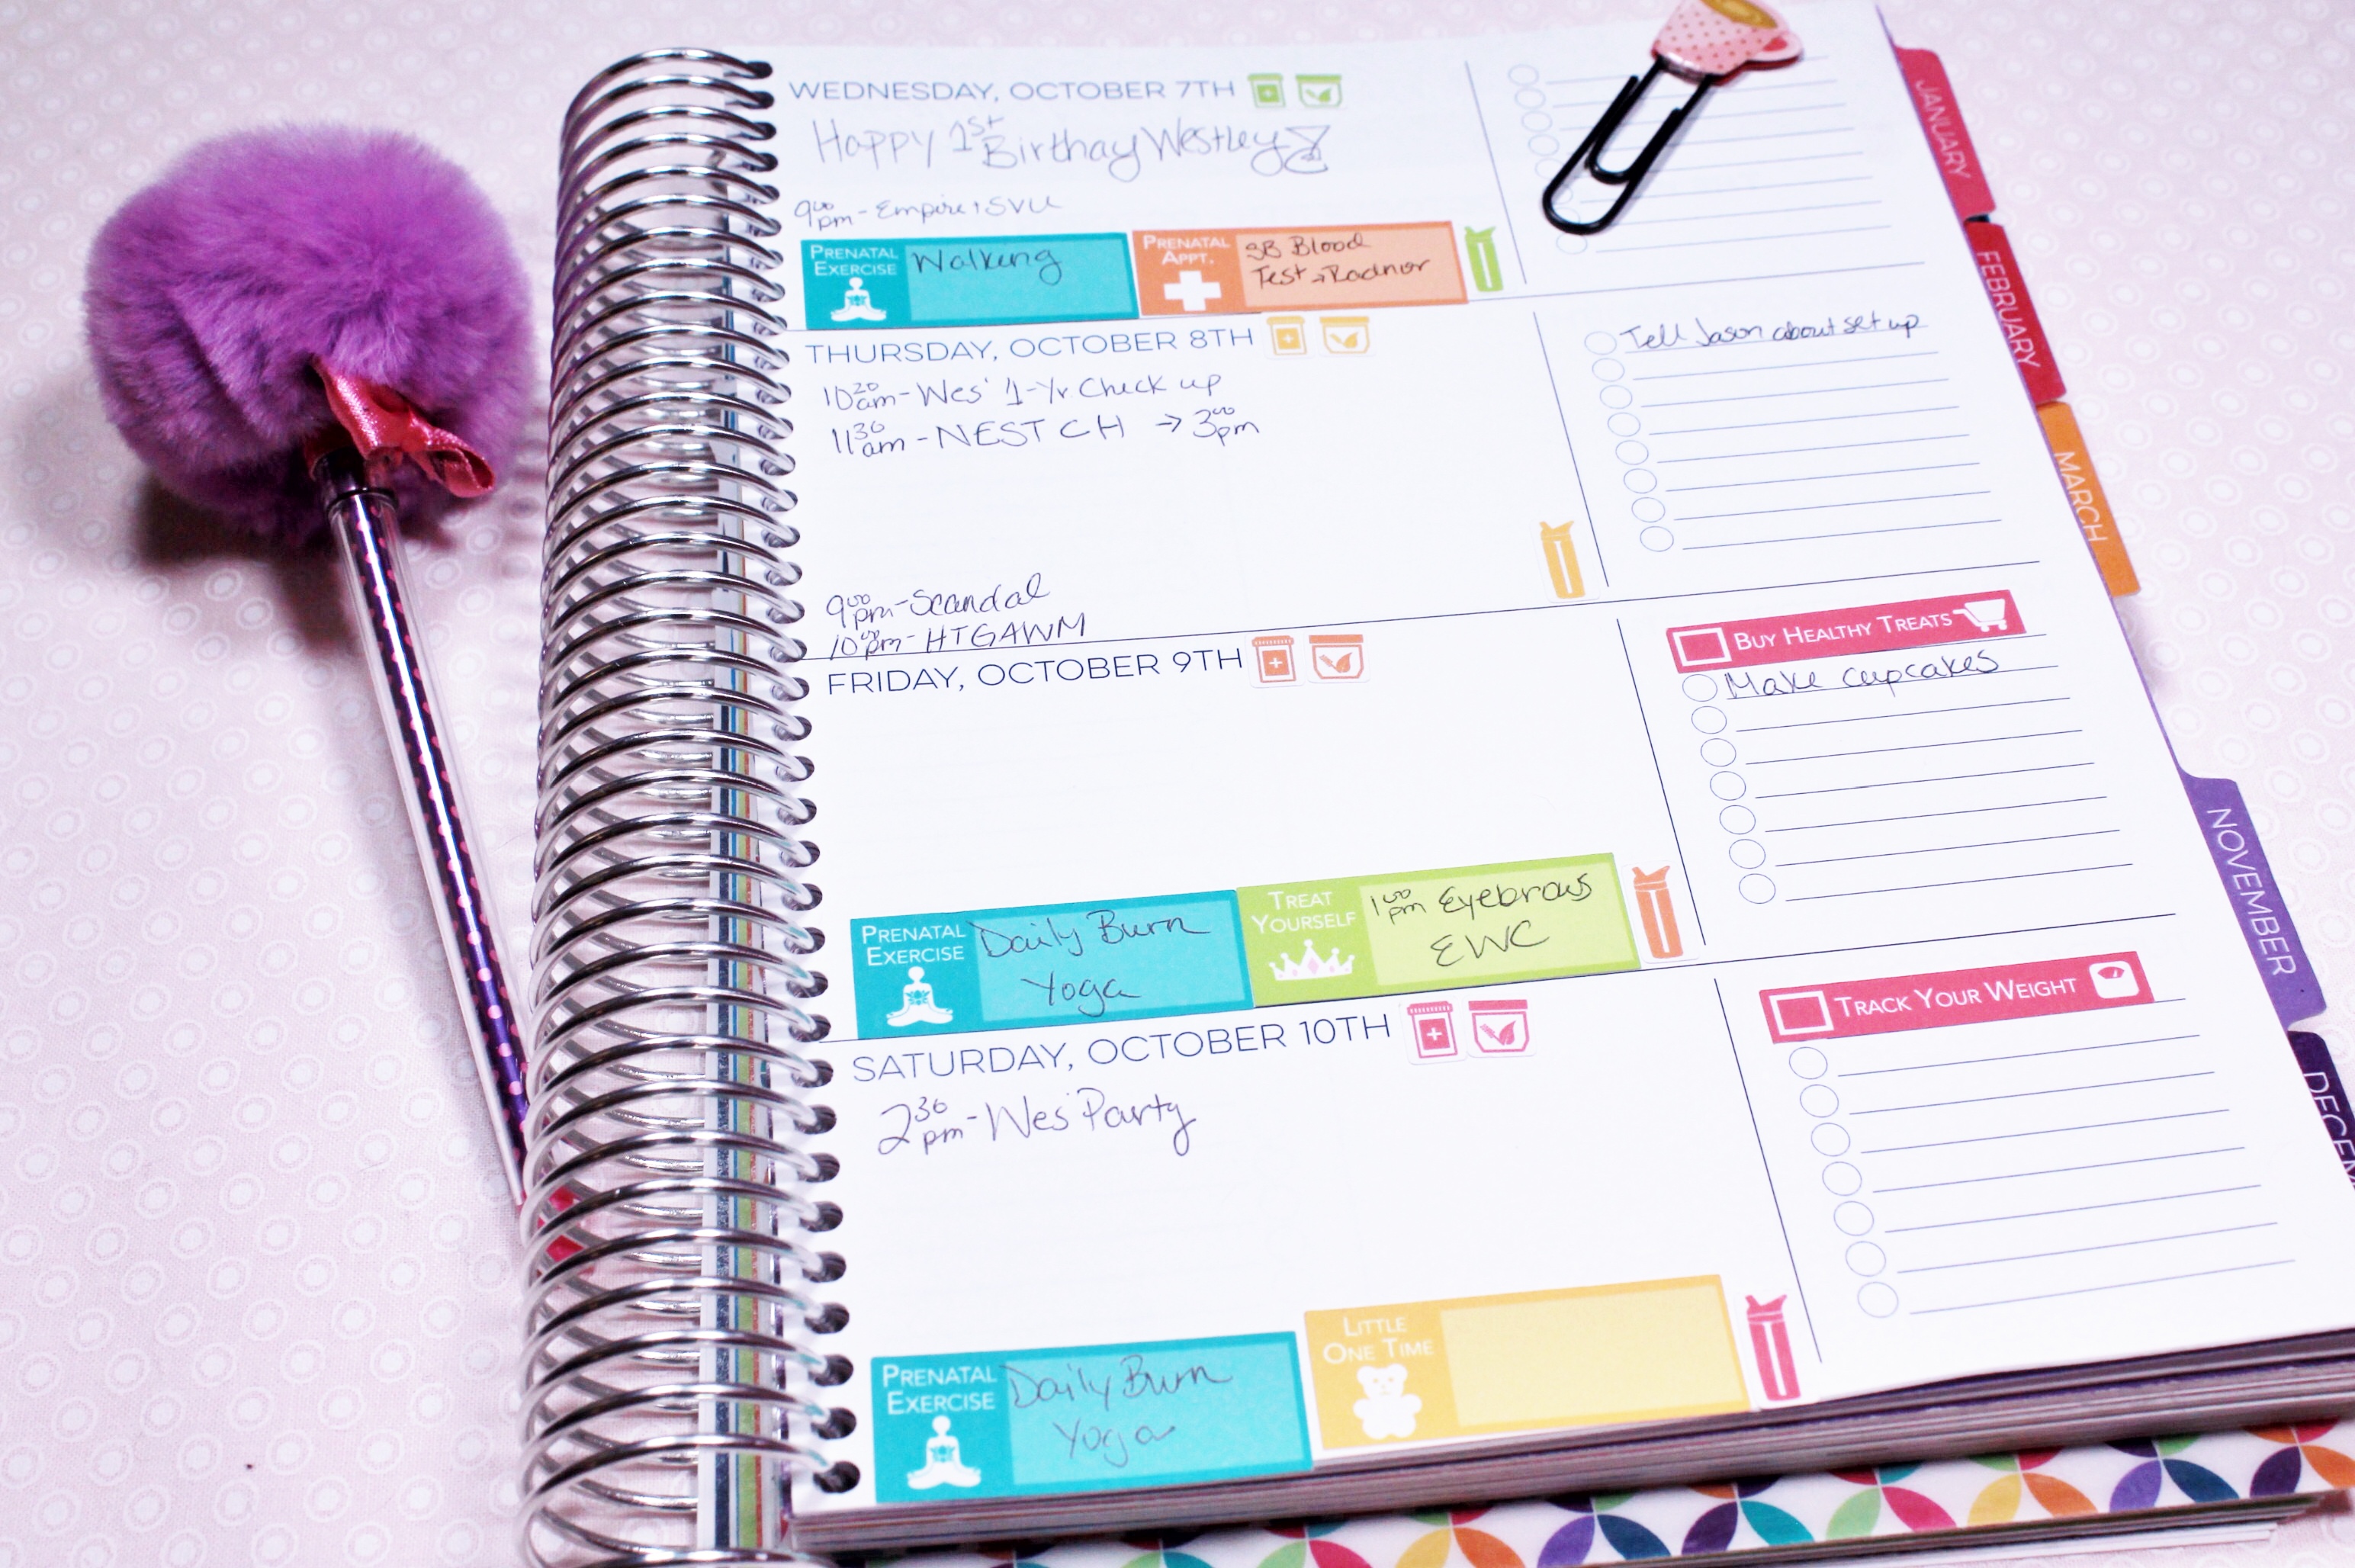 WEDNESDAY, OCTOBER 7TH
Happy 1st Birthay Westley
9:00 pm - Empire, SVU
PRENATAL EXERCISE
Walking
PRENATAL APPT.
SB Blood
Test → Radnor
THURSDAY, OCTOBER 8TH
10:20 am - Wes' 1-Yr. Check up
11:30 am - NEST CH → 3:00 pm
9:00 pm - Scandal
10:00 pm - HTGAWM
Tell Jason about set up
FRIDAY, OCTOBER 9TH
PRENATAL EXERCISE
Daily Burn
Yoga
TREAT YOURSELF
1:00 pm Eyebrows
EWC
BUY HEALTHY TREATS
Make cupcakes
SATURDAY, OCTOBER 10TH
2:30 pm - Wes' Party
PRENATAL EXERCISE
Daily Burn
Yoga
LITTLE ONE TIME
TRACK YOUR WEIGHT
JANUARY
FEBRUARY
MARCH
NOVEMBER
DECEM